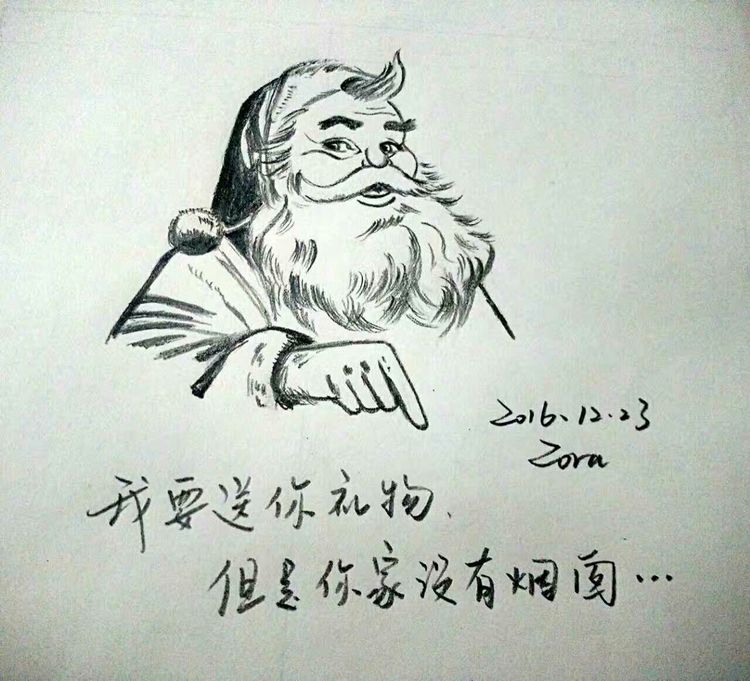 2016.12.23
Zora
我要送你礼物、
但是你家没有烟囱…